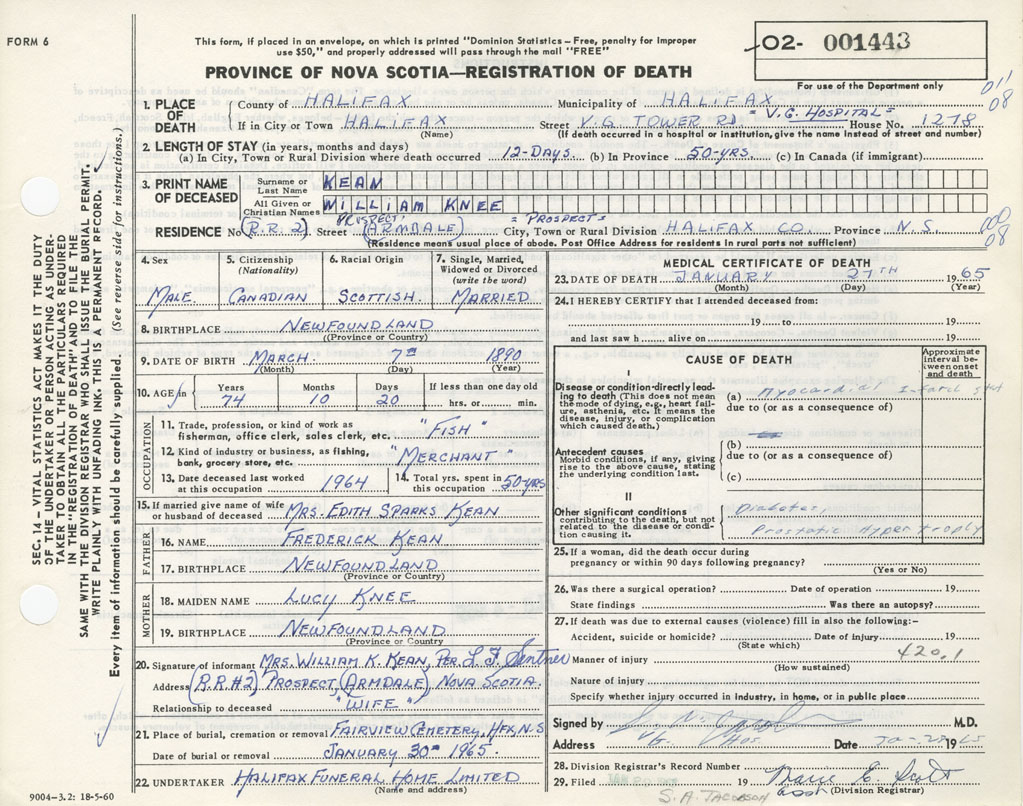 FORM 6
This form, if placed in an envelope, on which is printed "Dominion Statistics—Free, penalty for improper
use $50," and properly addressed will pass through the mail "FREE"
O2- 001443
PROVINCE OF NOVA SCOTIA—REGISTRATION OF DEATH
For use of the Department only
1. PLACE OF DEATH
County of HALIFAX Municipality of HALIFAX
"V.G. HOSPITAL"
If in City or Town HALIFAX Street V.G TOWER RD House No. 1278
(Name) (If death occurred in a hospital or institution, give the name instead of street and number)
2. LENGTH OF STAY (in years, months and days)
(a) In City, Town or Rural Division where death occurred 12-DAYS. (b) In Province 50-YRS. (c) In Canada (if immigrant)
3. PRINT NAME OF DECEASED
Surname or Last Name KEAN
All Given or Christian Names WILLIAM KNEE
PROSPECT, "PROSPECT"
RESIDENCE No (R.R. 2) Street (ARMDALE) City, Town or Rural Division HALIFAX CO. Province N.S.
(Residence means usual place of abode. Post Office Address for residents in rural parts not sufficient)
08
08
4. Sex MALE
5. Citizenship (Nationality) CANADIAN
6. Racial Origin SCOTTISH.
7. Single, Married, Widowed or Divorced (write the word) MARRIED
8. BIRTHPLACE NEWFOUNDLAND
(Province or Country)
9. DATE OF BIRTH MARCH. 7TH 1890
(Month) (Day) (Year)
10. AGE in Years 74 Months 10 Days 20 If less than one day old hrs. or min.
OCCUPATION
11. Trade, profession, or kind of work as
fisherman, office clerk, sales clerk, etc. "FISH"
12. Kind of industry or business, as fishing,
bank, grocery store, etc. "MERCHANT"
13. Date deceased last worked at this occupation 1964
14. Total yrs. spent in this occupation 50-YRS
15. If married give name of wife or husband of deceased MRS. EDITH SPARKS KEAN
FATHER
16. NAME FREDERICK KEAN
17. BIRTHPLACE NEWFOUNDLAND
(Province or Country)
MOTHER
18. MAIDEN NAME LUCY KNEE
19. BIRTHPLACE NEWFOUNDLAND
(Province or Country)
20. Signature of informant MRS. WILLIAM K. KEAN, PER L. F. Sentner
Address (R.R#2) PROSPECT, (ARMDALE), NOVA SCOTIA.
Relationship to deceased "WIFE"
21. Place of burial, cremation or removal FAIRVIEW CEMETERY, HFX, N.S
Date of burial or removal JANUARY 30TH 1965.
22. UNDERTAKER HALIFAX FUNERAL HOME LIMITED
(Name and address)
9004—3.2: 18-5-60
MEDICAL CERTIFICATE OF DEATH
23. DATE OF DEATH JANUARY 27TH 1965
(Month) (Day) (Year)
24. I HEREBY CERTIFY that I attended deceased from:
19 to 19
and last saw h alive on 19
CAUSE OF DEATH
Approximate interval between onset and death
I
Disease or condition directly leading to death (This does not mean the mode of dying, e.g., heart failure, asthenia, etc. It means the disease, injury, or complication which caused death.)
(a) Myocardial Infarct
due to (or as a consequence of)
Antecedent causes
Morbid conditions, if any, giving rise to the above cause, stating the underlying condition last.
(b)
due to (or as a consequence of)
(c)
II
Other significant conditions
contributing to the death, but not related to the disease or condition causing it.
Diabetes,
Prostatic Hypertrophy
25. If a woman, did the death occur during
pregnancy or within 90 days following pregnancy?
(Yes or No)
26. Was there a surgical operation? Date of operation 19
State findings Was there an autopsy?
27. If death was due to external causes (violence) fill in also the following:—
Accident, suicide or homicide? Date of injury 19
(State which)
Manner of injury 420.1
(How sustained)
Nature of injury
Specify whether injury occurred in industry, in home, or in public place
Signed by M.D.
Address V.G. Hos. Date 1965
28. Division Registrar's Record Number
29. Filed 19 Marie E. Scott
asst (Division Registrar)
S. A. JACOBSON
SEC. 14 — VITAL STATISTICS ACT MAKES IT THE DUTY
OF THE UNDERTAKER OR PERSON ACTING AS UNDER-
TAKER TO OBTAIN ALL THE PARTICULARS REQUIRED
IN THE "REGISTRATION OF DEATH" AND TO FILE THE
SAME WITH THE DIVISION REGISTRAR WHO SHALL ISSUE THE BURIAL PERMIT.
WRITE PLAINLY WITH UNFADING INK. THIS IS A PERMANENT RECORD.
Every item of information should be carefully supplied. (See reverse side for instructions.)